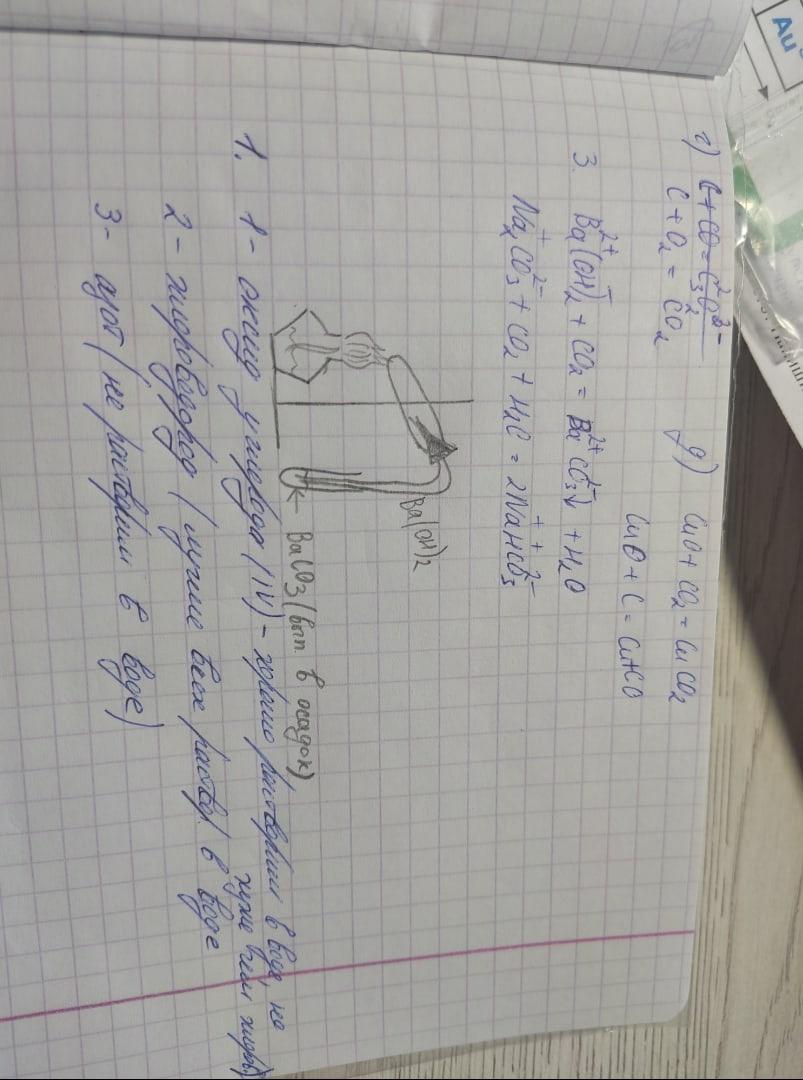 г) C + CO = C₃²O₂²⁻
C + O₂ = CO₂
д) CuO + CO₂ = CuCO₂
CuO + C = Cu+CO
3. Ba²⁺(OH)₂⁻ + CO₂ = Ba²⁺CO₃²⁻↓ + H₂O
Na₂⁺CO₃²⁻ + CO₂ + H₂O = 2Na⁺H⁺CO₃²⁻
Ba(OH)₂
← BaCO₃ (вып. в осадок)
1. 1 - оксид углевода (IV) - хорошо растворим в воде, но
хуже чем хлоров)
2 - хлороводород (лучше всех раствор. в воде
3 - азот (не растворим в воде)
Au